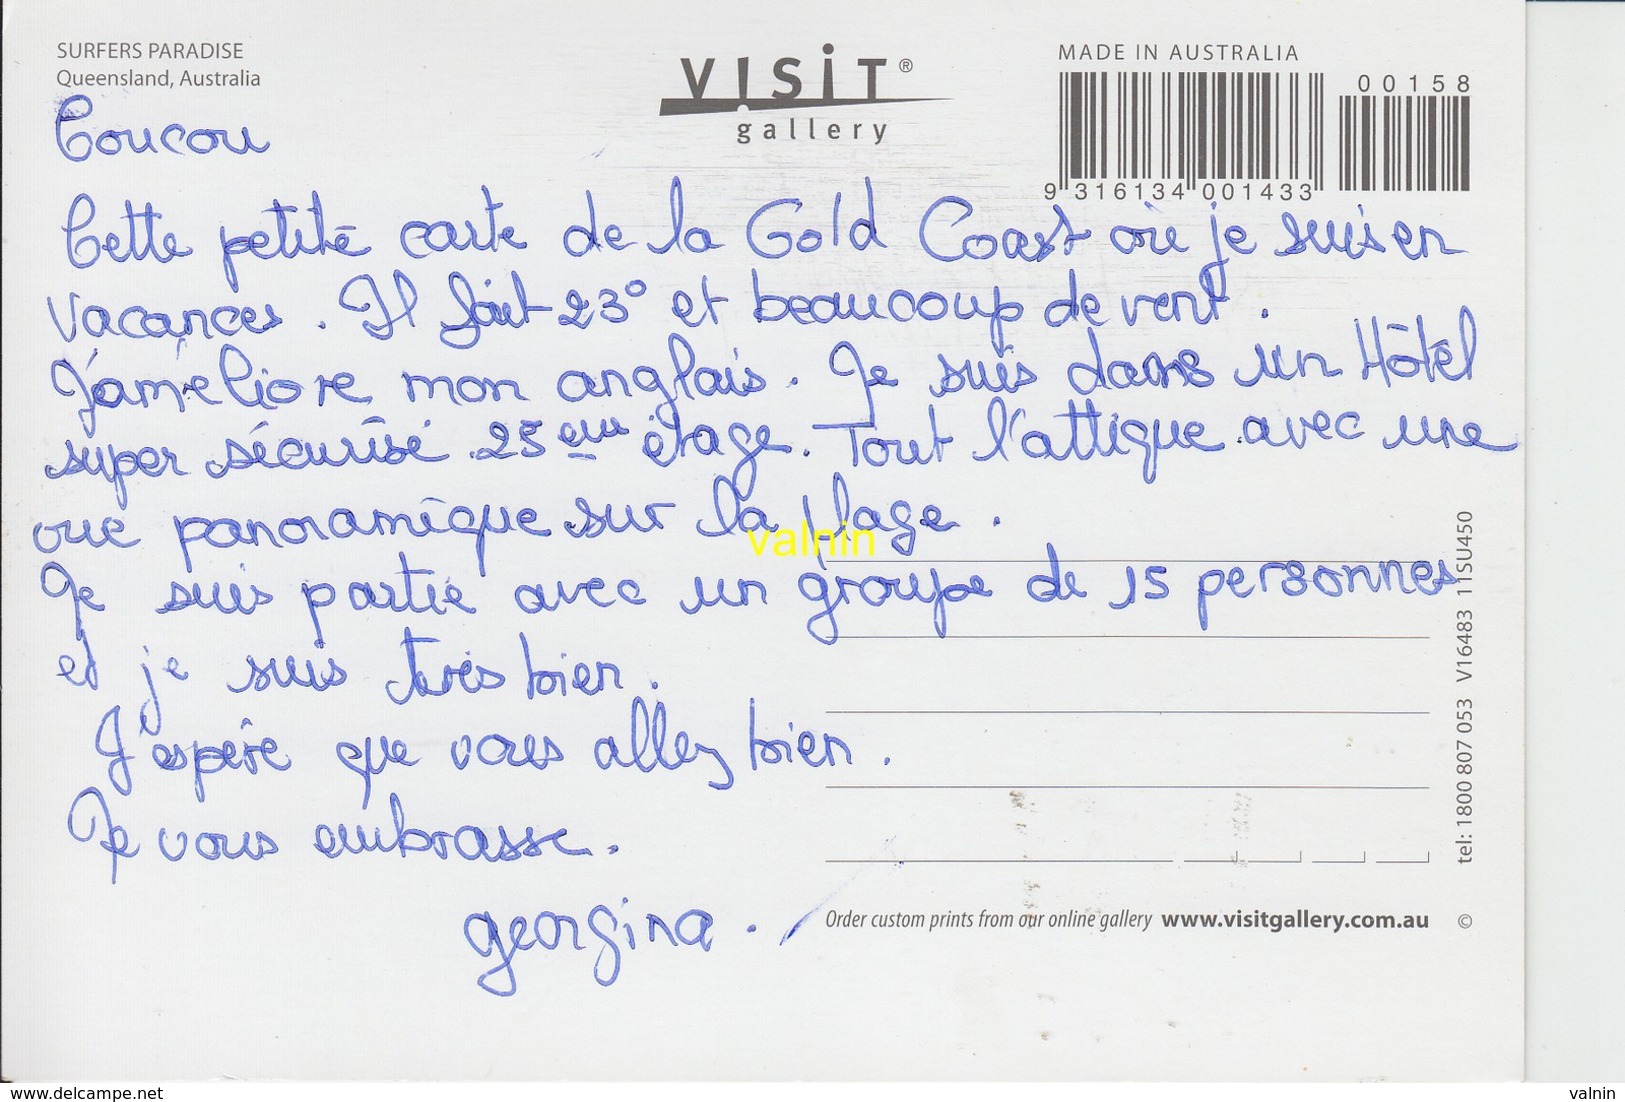 SURFERS PARADISE
Queensland, Australia
VISIT®
gallery
MADE IN AUSTRALIA
00158
9 316134 001433
Coucou
Cette petite carte de la Gold Coast où je suis en
vacances. Il fait 23° et beaucoup de vent.
J'améliore mon anglais. Je suis dans un Hôtel
super sécurisé 25eme étage. Tout l'attique avec une
vue panoramique sur la plage.
valnin
Je suis partie avec un groupe de 15 personnes
et je suis très bien.
J'espère que vous allez bien.
Je vous embrasse.
georgina.
tel: 1800 807 053 V16483 11SU450
Order custom prints from our online gallery www.visitgallery.com.au ©
www.delcampe.net
valnin